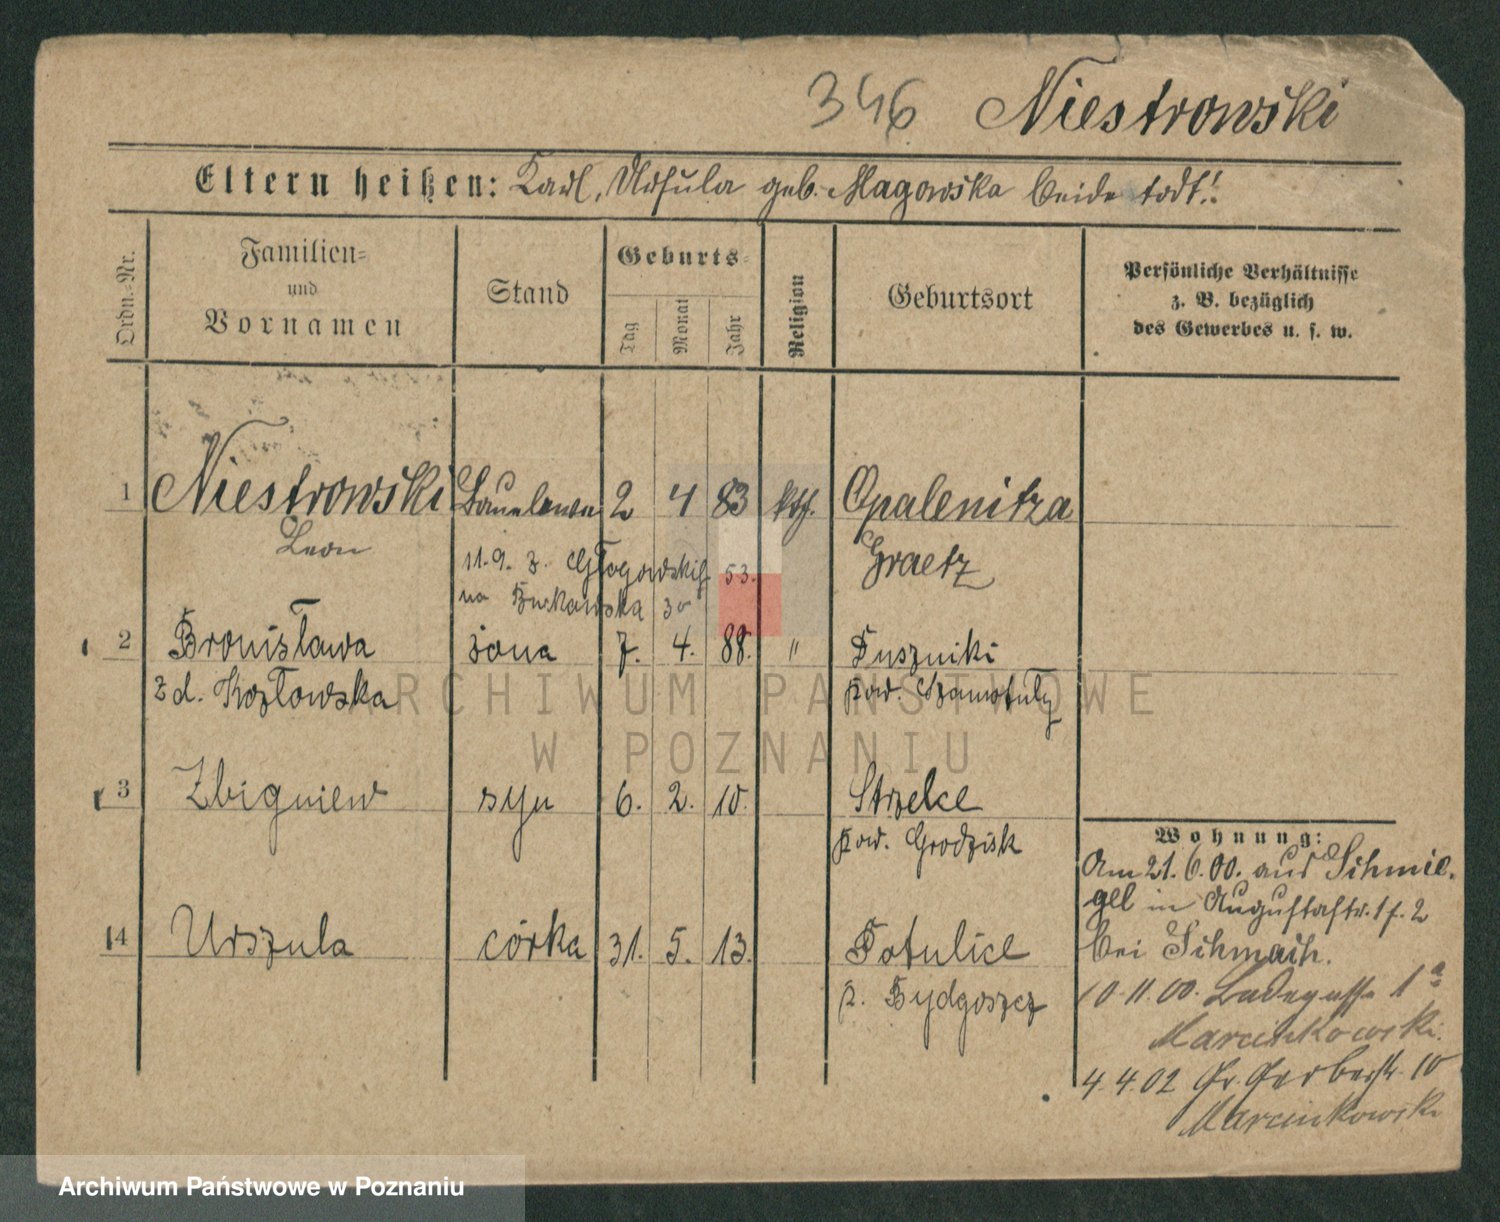 346 Niestrowski
Eltern heißen: Karl, Ursula geb. Magowska beide todt!
Ordn.-Nr.
Familien-
und
Vornamen
Stand
Geburts-
Tag
Monat
Jahr
Religion
Geburtsort
Persönliche Verhältnisse
z. B. bezüglich
des Gewerbes u. s. w.
1 Niestrowski 2 4 83 kth. Opalenitza
Leon Graetz
11.9. z. Głogowskiej 53.
na Bukowska 30
2 Bronisława żona 7. 4. 88. " Duszniki
z d. Kozłowska pow. Szamotuły
3 Zbigniew syn 6. 2. 10. Strzelce
pow. Grodzisk
4 Urszula córka 31. 5. 13. Potulice
p. Bydgoszcz
Wohnung:
Am 21.6.00. aus Schmie-
gel in Augustastr. 1 f. 2
bei
10.11.00. Badegasse 1a
Marcinkowski.
4.4.02 Gr. Gerberstr. 10
Marcinkowski
ARCHIWUM PAŃSTWOWE
W POZNANIU
Archiwum Państwowe w Poznaniu